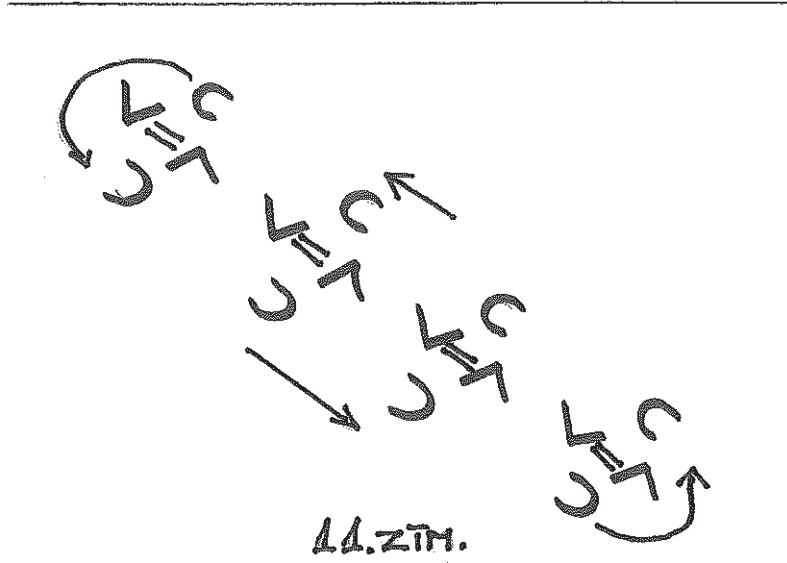 11.ZĪM.